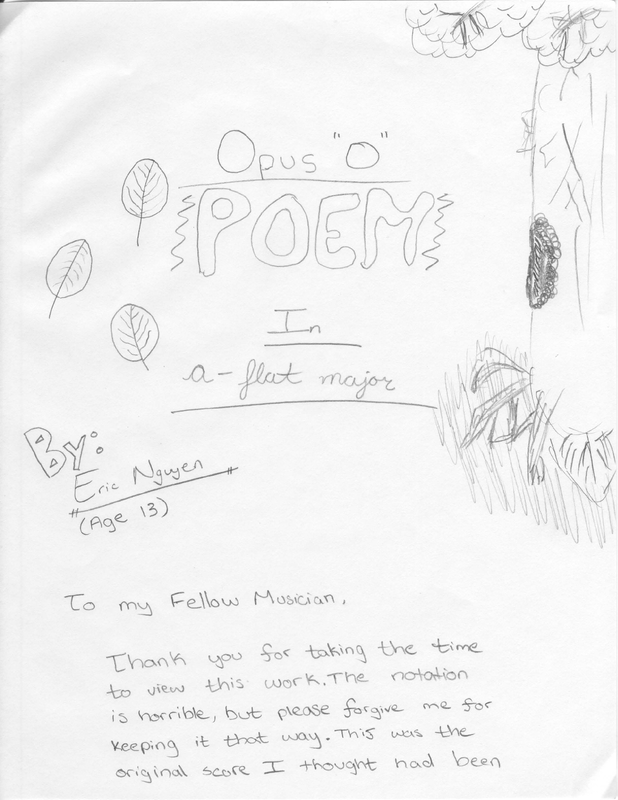 Opus "O"
POEM
In
a-flat major
By:
Eric Nguyen
(Age 13)
To my Fellow Musician,
Thank you for taking the time
to view this work. The notation
is horrible, but please forgive me for
keeping it that way. This was the
original score I thought had been